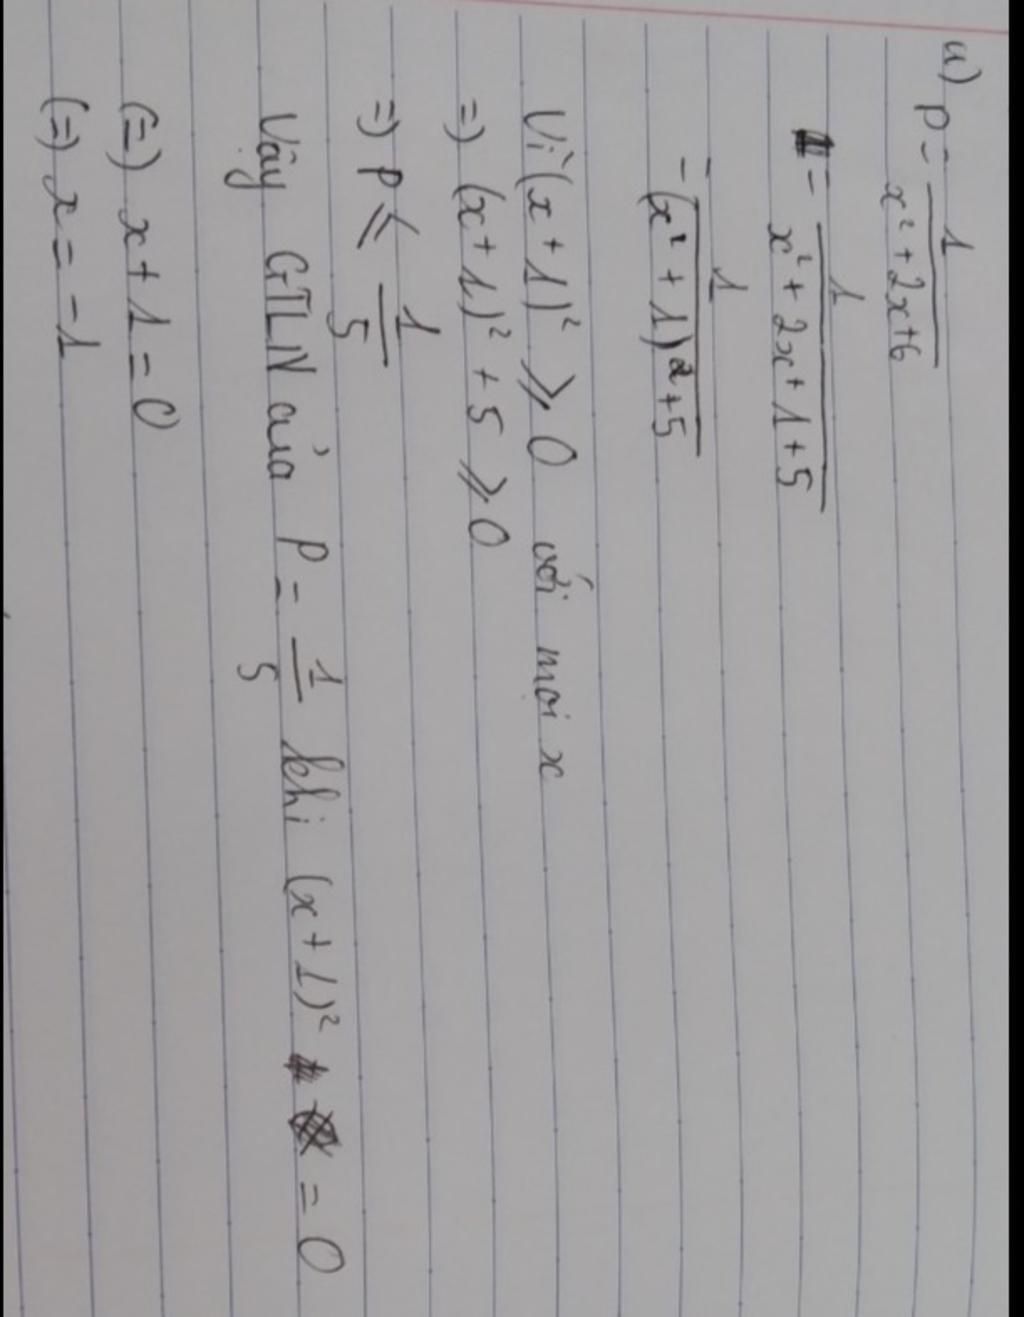 a) P = 1/(x² + 2x + 6)
= 1/(x² + 2x + 1 + 5)
= 1/((x² + 1)² + 5)
Vì (x + 1)² ⩾ 0 với mọi x
=) (x + 1)² + 5 ⩾ 0
=) P ⩽ 1/5
Vậy GTLN của P = 1/5 khi (x + 1)² = 0
(=) x + 1 = 0
(=) x = -1